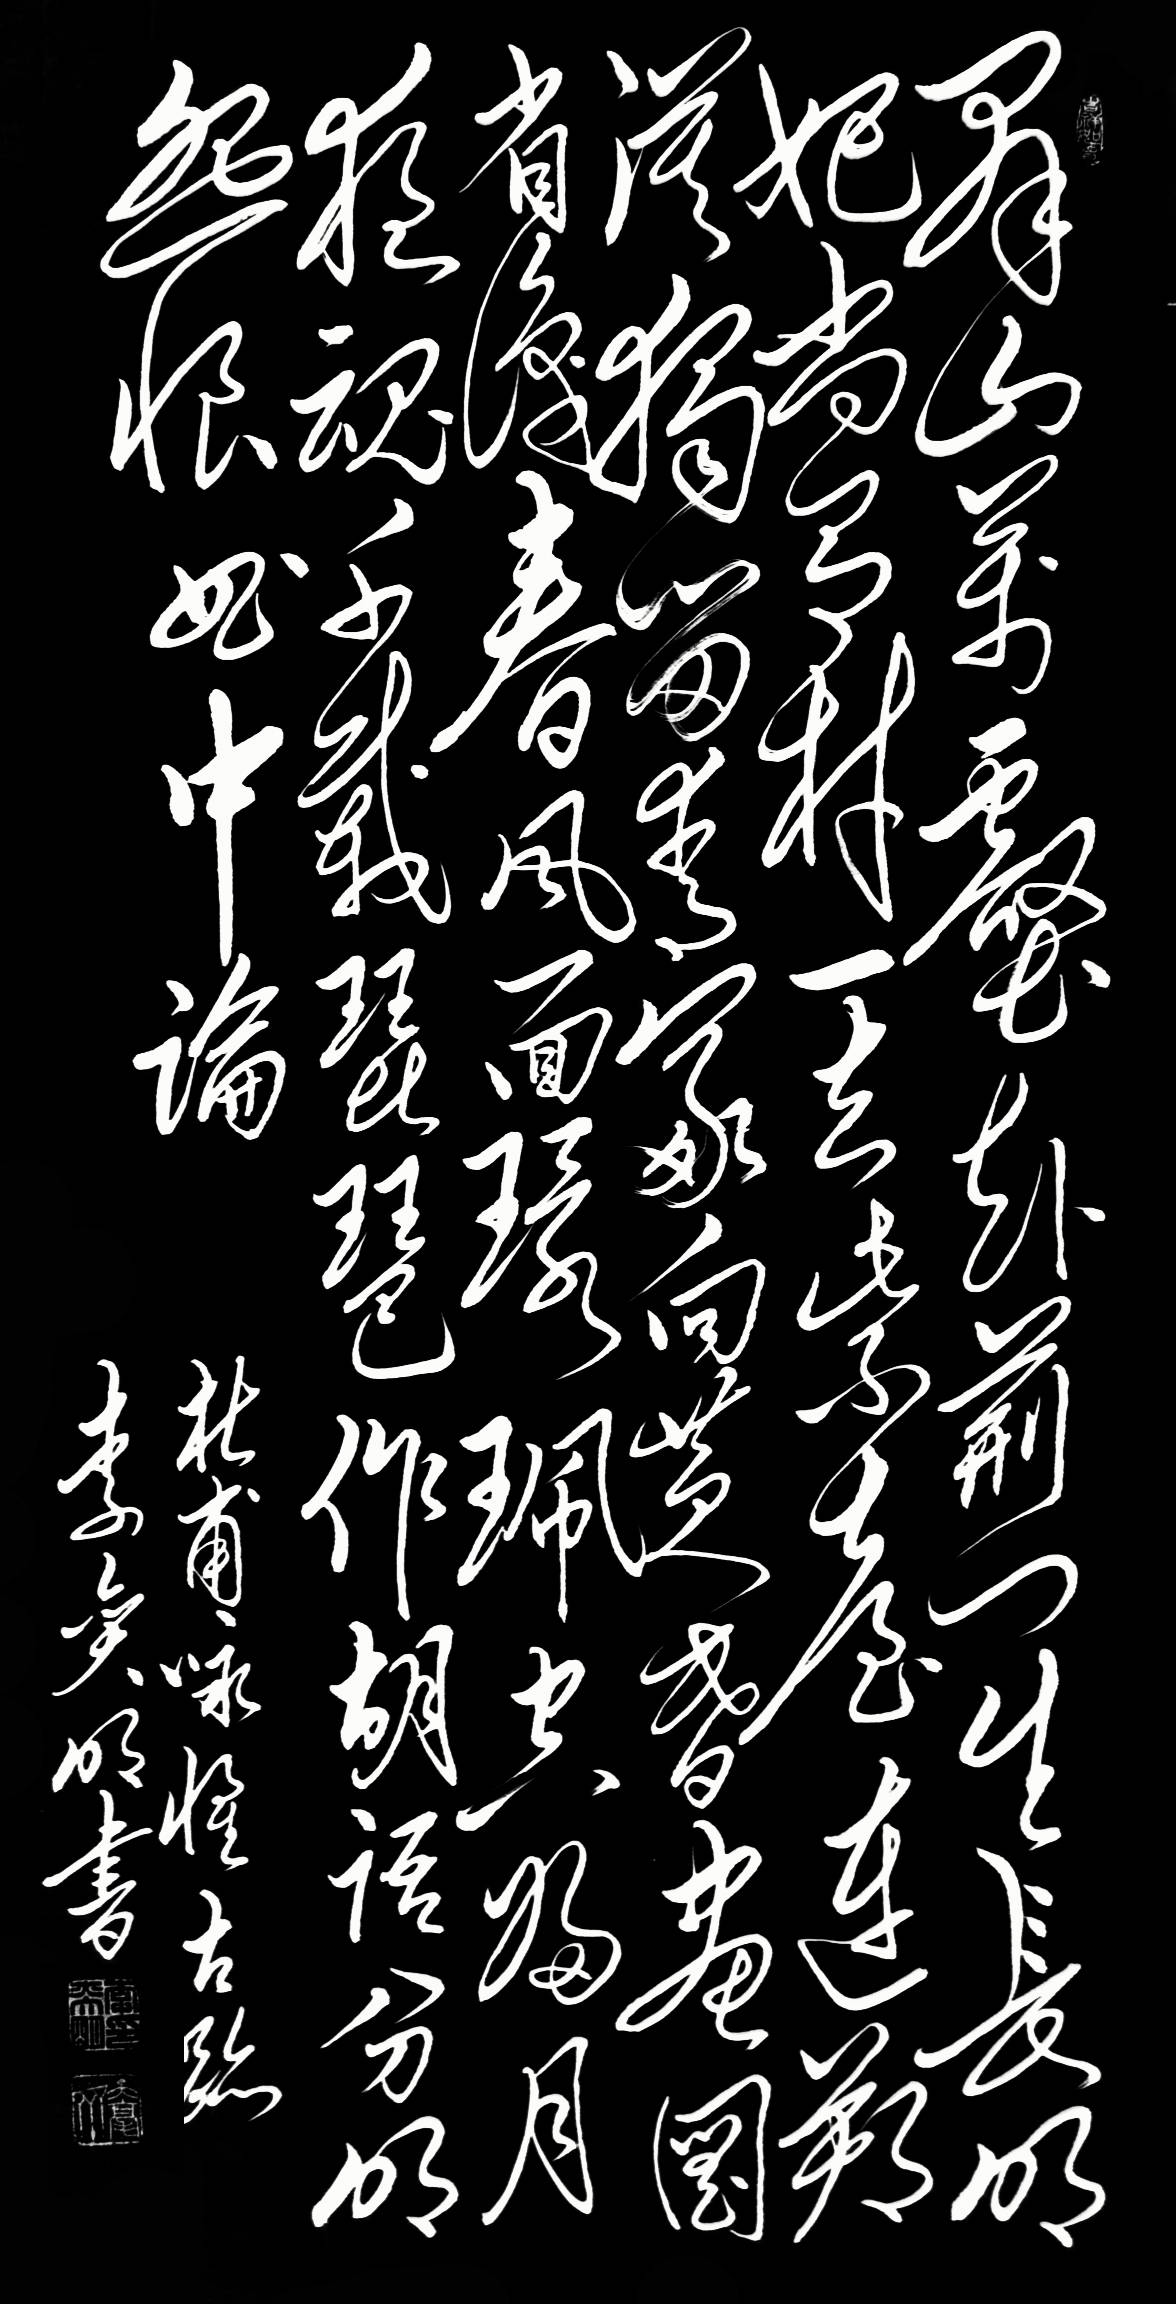 群山萬壑赴荆門生長明
妃尚有村一去紫臺連朔
漠獨留青冢向黄昏畫圖
省識春風面環珮空歸月
夜魂千載琵琶作胡語分明
怨恨曲中論
杜甫詠懷古跡
李明書